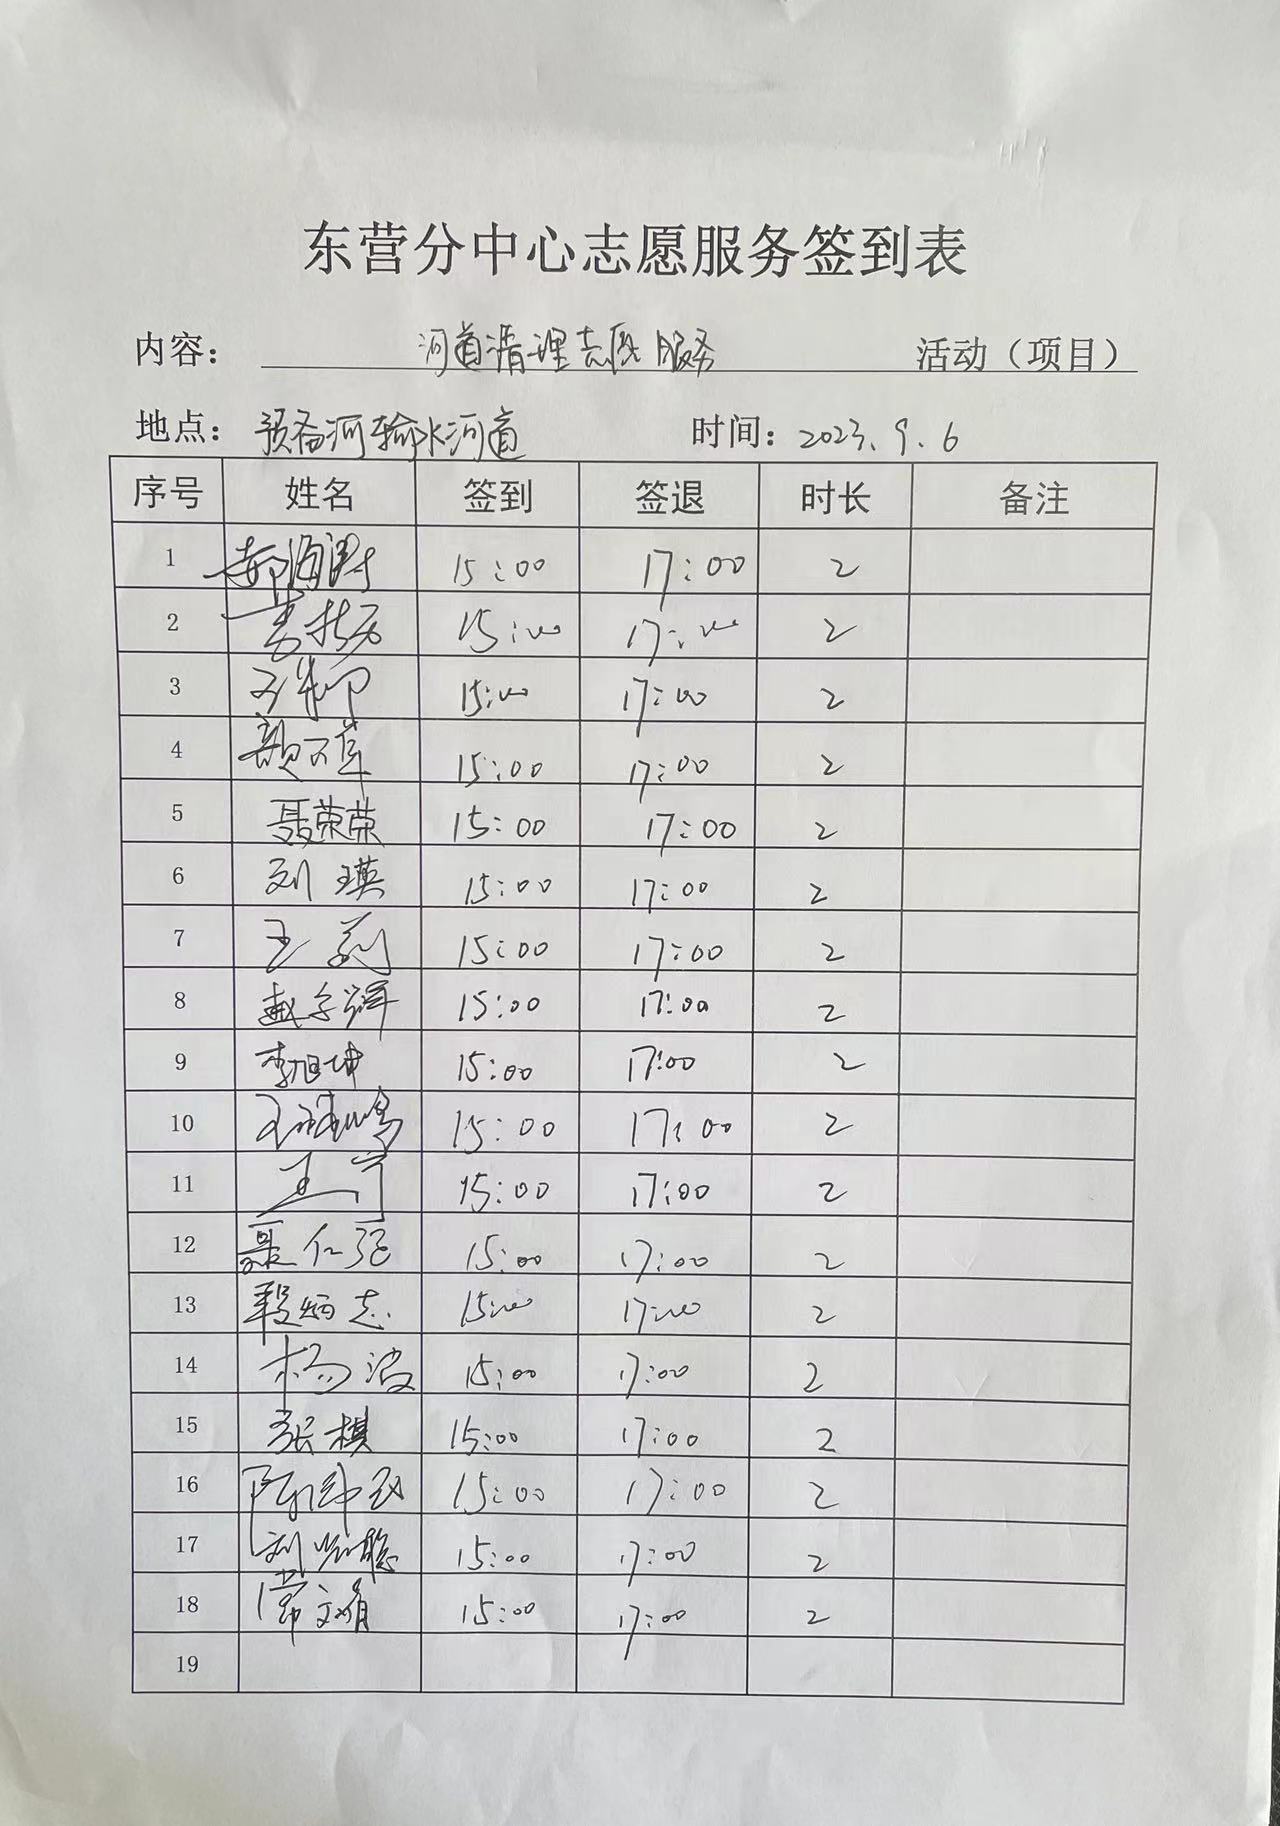 东营分中心志愿服务签到表
内容： 河道清理志愿服务 活动（项目）
地点： 预备河输水河道 时间：2023.9.6
序号 姓名 签到 签退 时长 备注
1 15:00 17:00 2
2 15:00 17:00 2
3 15:00 17:00 2
4 15:00 17:00 2
5 聂荣荣 15:00 17:00 2
6 刘瑛 15:00 17:00 2
7 王莉 15:00 17:00 2
8 15:00 17:00 2
9 李旭坤 15:00 17:00 2
10 15:00 17:00 2
11 15:00 17:00 2
12 聂仁强 15:00 17:00 2
13 段炳志 15:00 17:00 2
14 杨波 15:00 17:00 2
15 张棋 15:00 17:00 2
16 15:00 17:00 2
17 15:00 17:00 2
18 常文娟 15:00 17:00 2
19